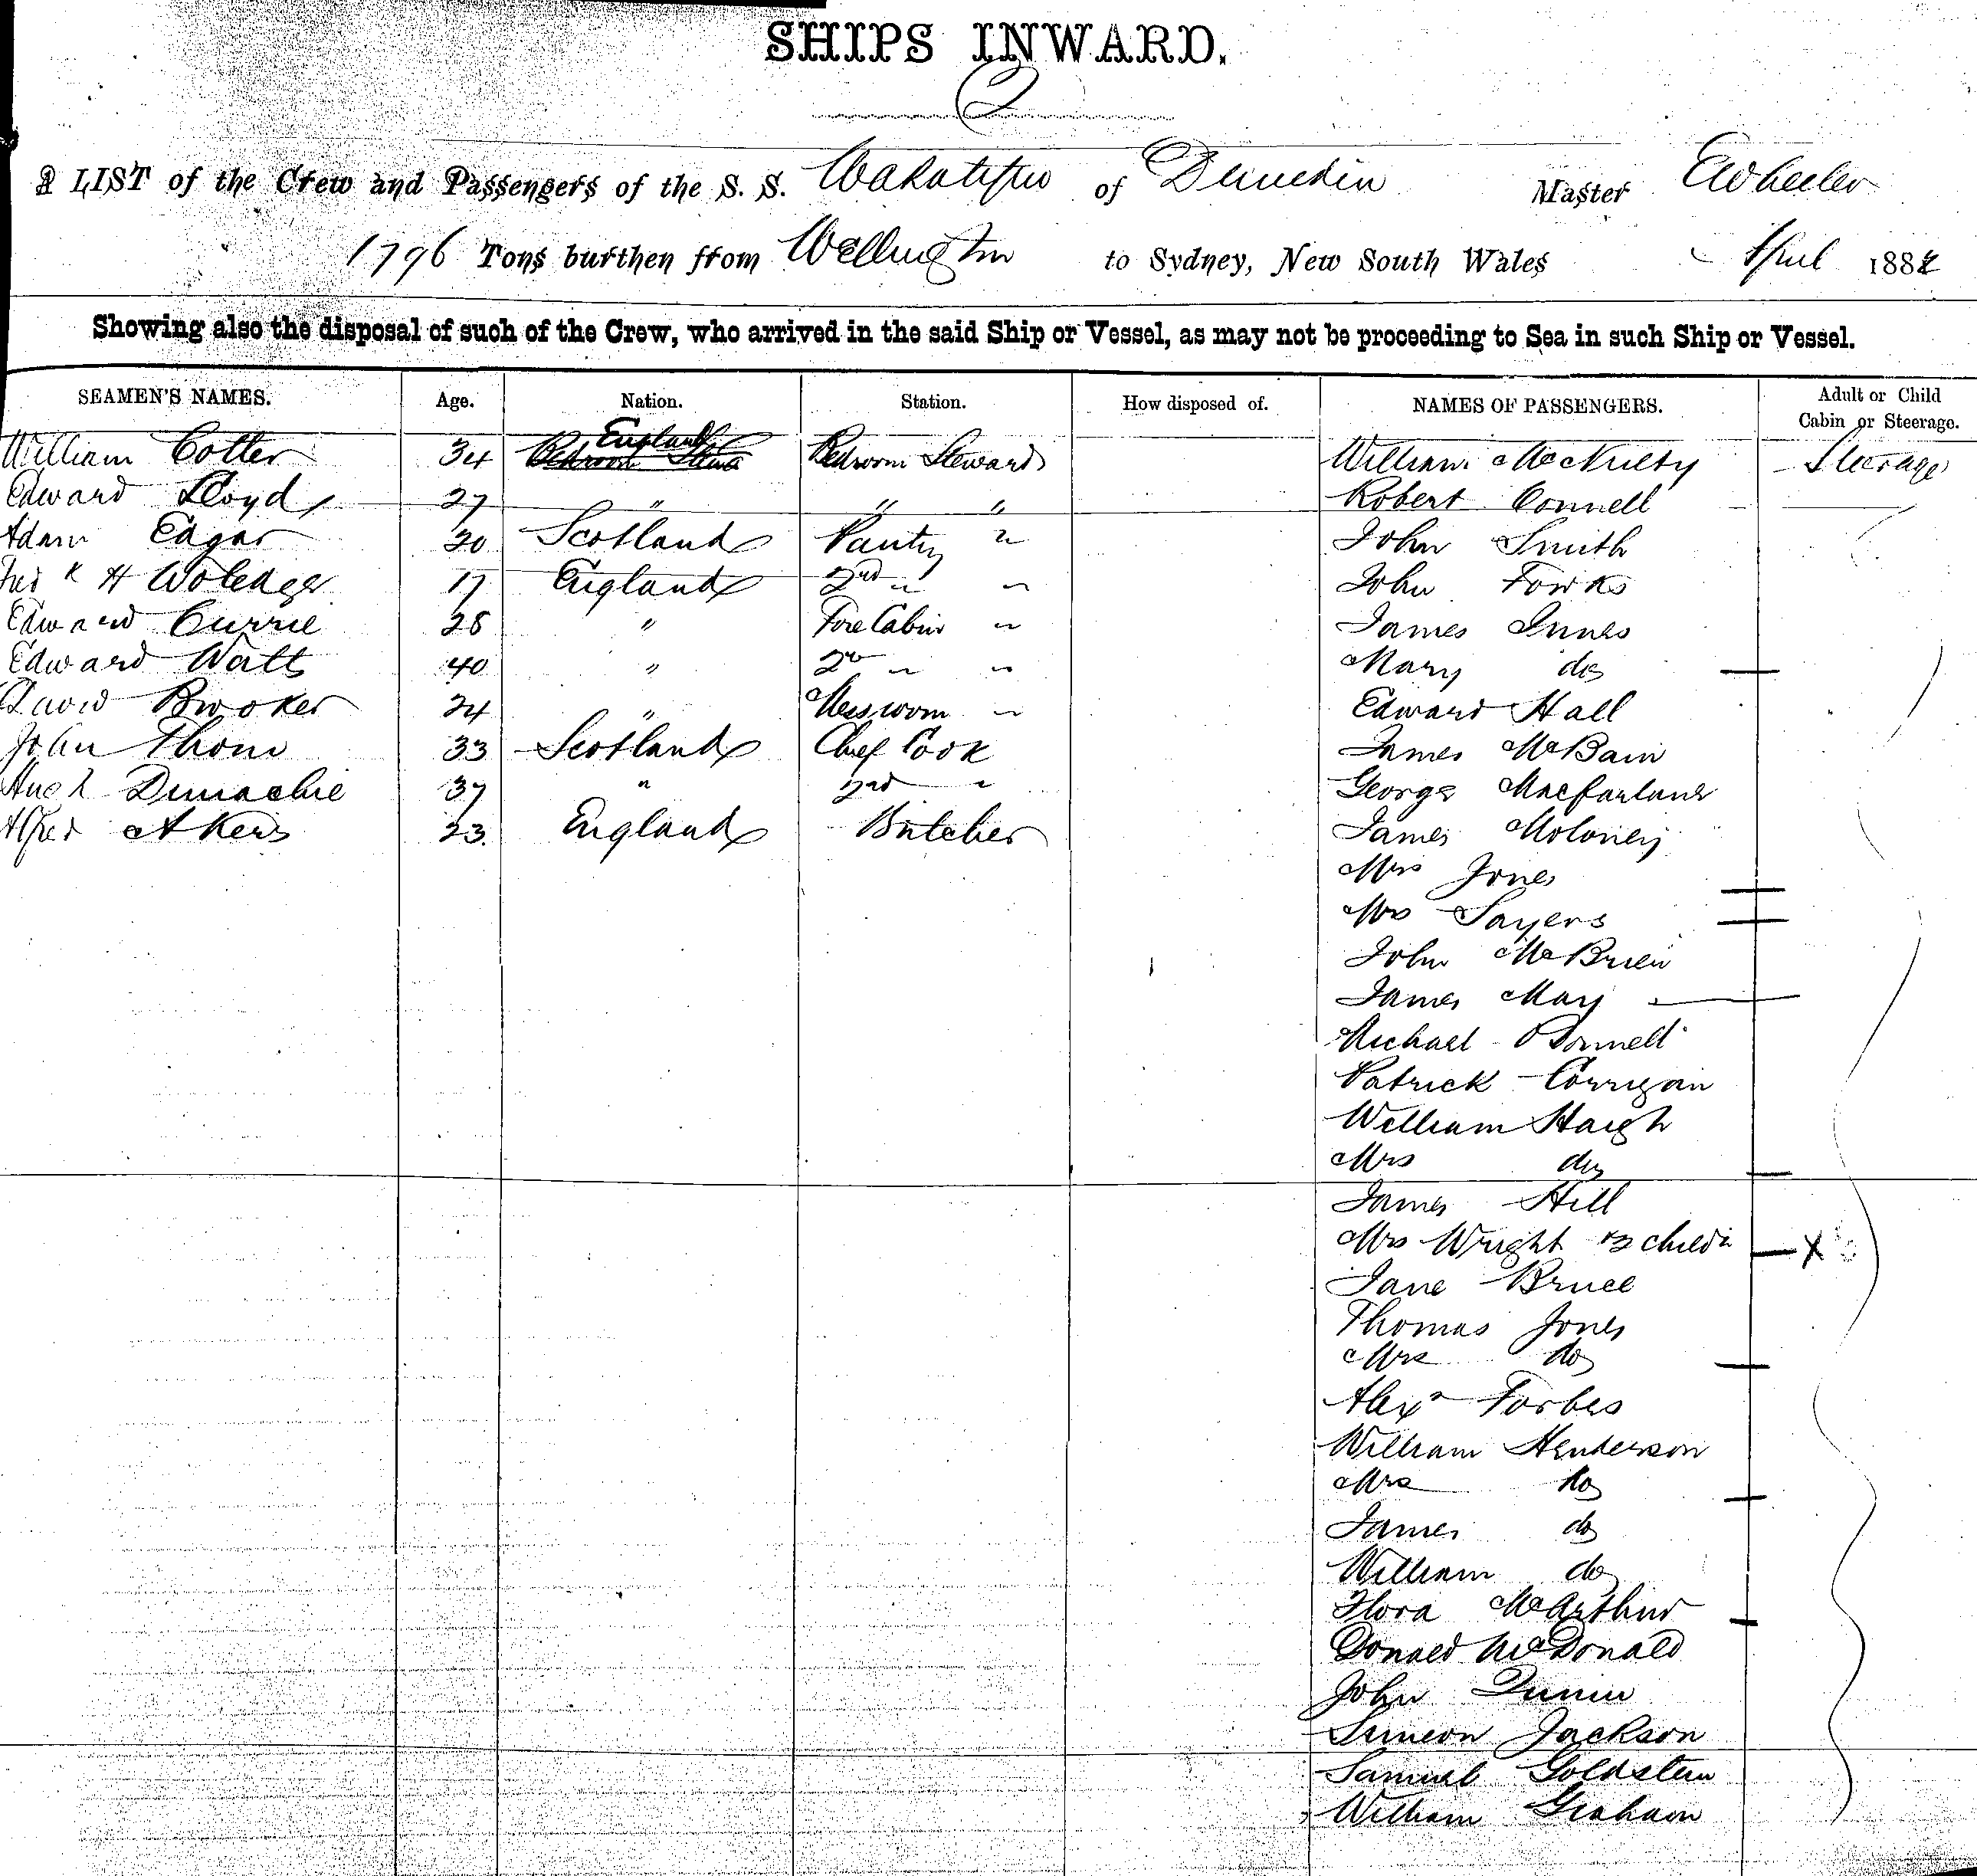 SHIPS INWARD.
2
A LIST of the Crew and Passengers of the S. S. Wakatipu of Dunedin Master EWheeler
1796 Tons burthen from Wellington to Sydney, New South Wales April 1882
Showing also the disposal of such of the Crew, who arrived in the said Ship or Vessel, as may not be proceeding to Sea in such Ship or Vessel.
SEAMEN'S NAMES. Age. Nation. Station. How disposed of. NAMES OF PASSENGERS. Adult or Child Cabin or Steerage.
William Cotter 34 England Bedroom Steward William McNulty Steerage
Edward Lloyd 27 " " " Robert Connell
Adam Edgar 20 Scotland Pantry " John Smith
K H 17 England 2nd " " John Fowks
Edward Currie 28 " Fore Cabin " James Innes
Edward Watts 40 " 2nd " " Mary do
David Brooker 24 " Messroom " Edward Hall
John Thom 33 Scotland Chief Cook James McBain
Hugh Dunachie 37 " 2nd " George Macfarlane
Alfred Akers 23 England Butcher James Moloney
Mrs Jones
Mrs Sayers
John McBrien
James May
Michael O'Donnell
Patrick Corrigan
William Haigh
Mrs do
James Hill
Mrs Wright & 2 childn
Jane Bruce
Thomas Jones
Mrs do
Alexr Forbes
William Henderson
Mrs do
James do
William do
Flora McArthur
Donald McDonald
John
Simeon Jackson
Samuel Goldstein
William Graham